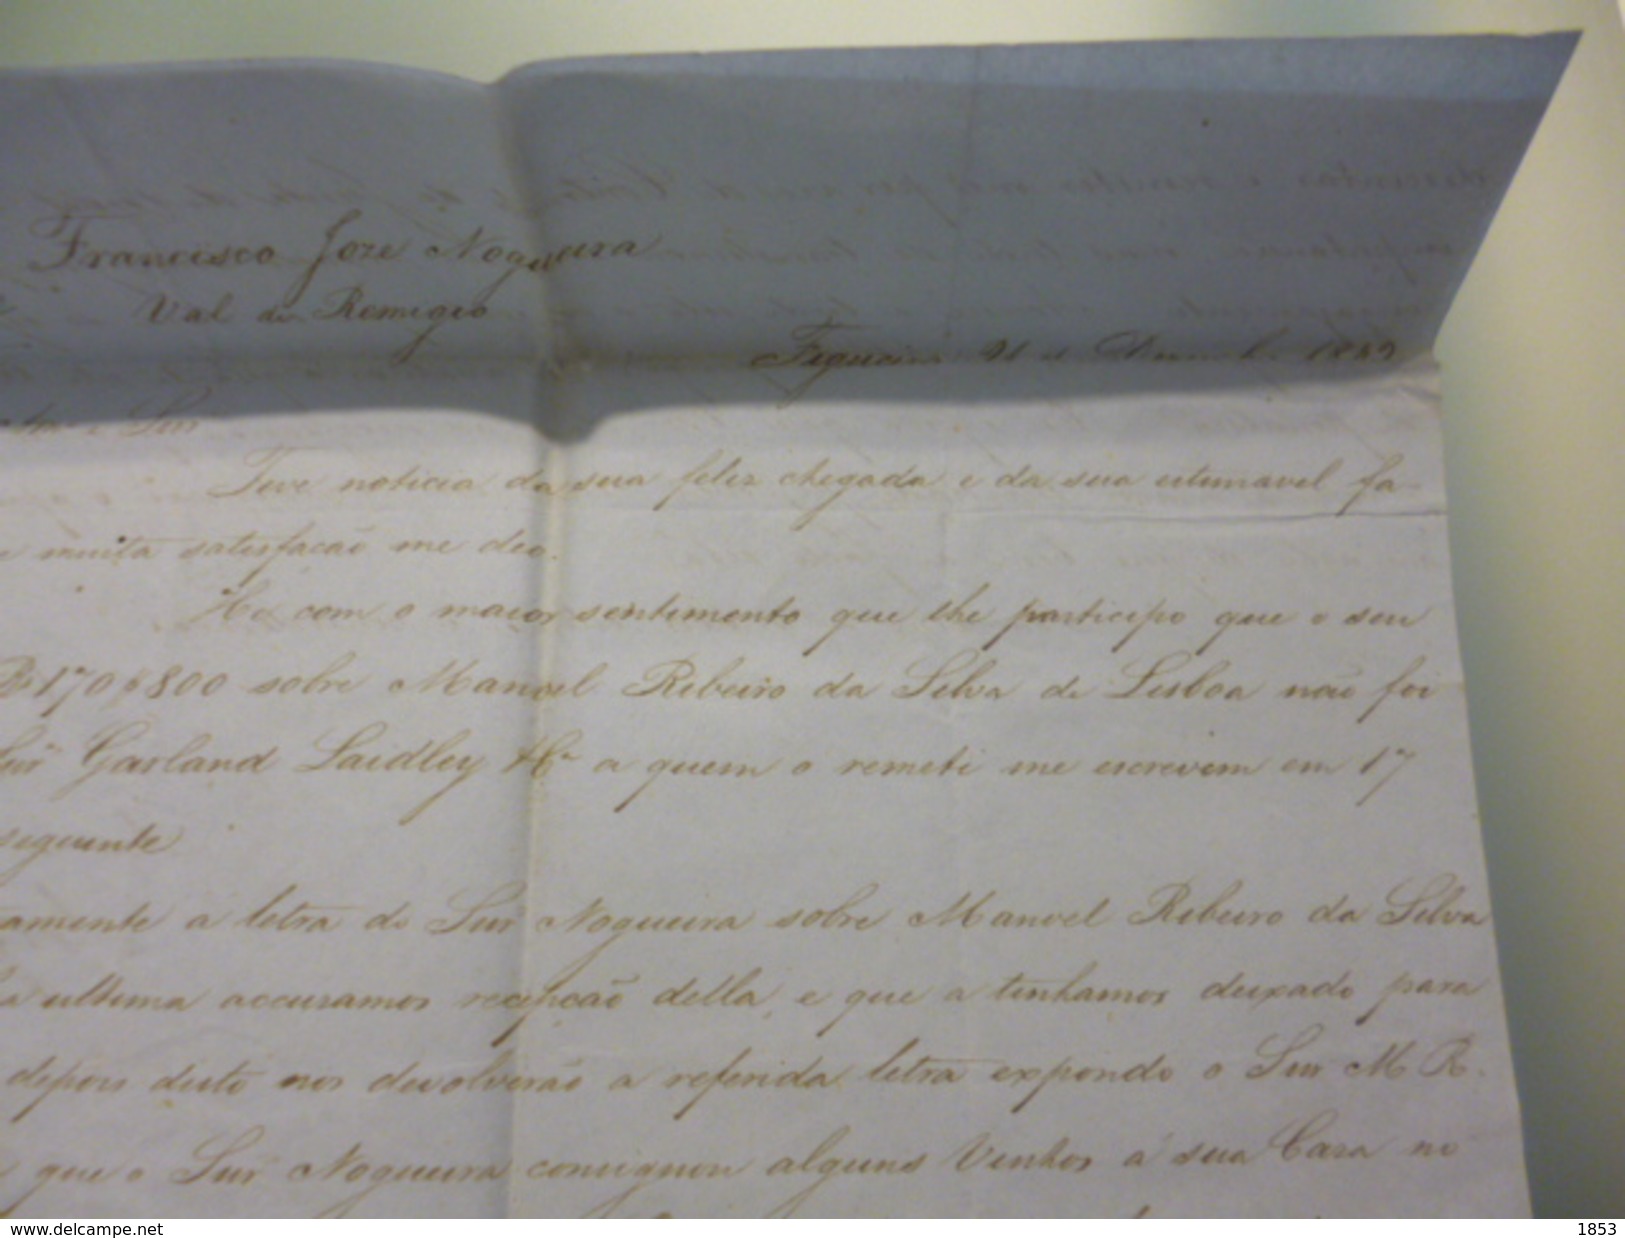 Francisco Joze Nogueira
Val de Remigio
Figueira 21 de Dezembro 1852
Snr
Tive noticia da sua feliz chegada e da sua estimavel fa-
muita satisfacão me deo.
He com o maior sentimento que lhe participo que o seu
170$800 sobre Manoel Ribeiro da Silva de Lisboa não foi
Garland Laidley & Ca a quem o remeti me escrevem em 17
seguinte
amente a letra do Snr Nogueira sobre Manoel Ribeiro da Silva
ultima accusamos recepcão della, e que a tinhamos deixado para
depois disto nos devolverão a referida letra expondo o Snr M R.
que o Snr Nogueira consignou alguns Vinhos á sua Caza no
www.delcampe.net
1853